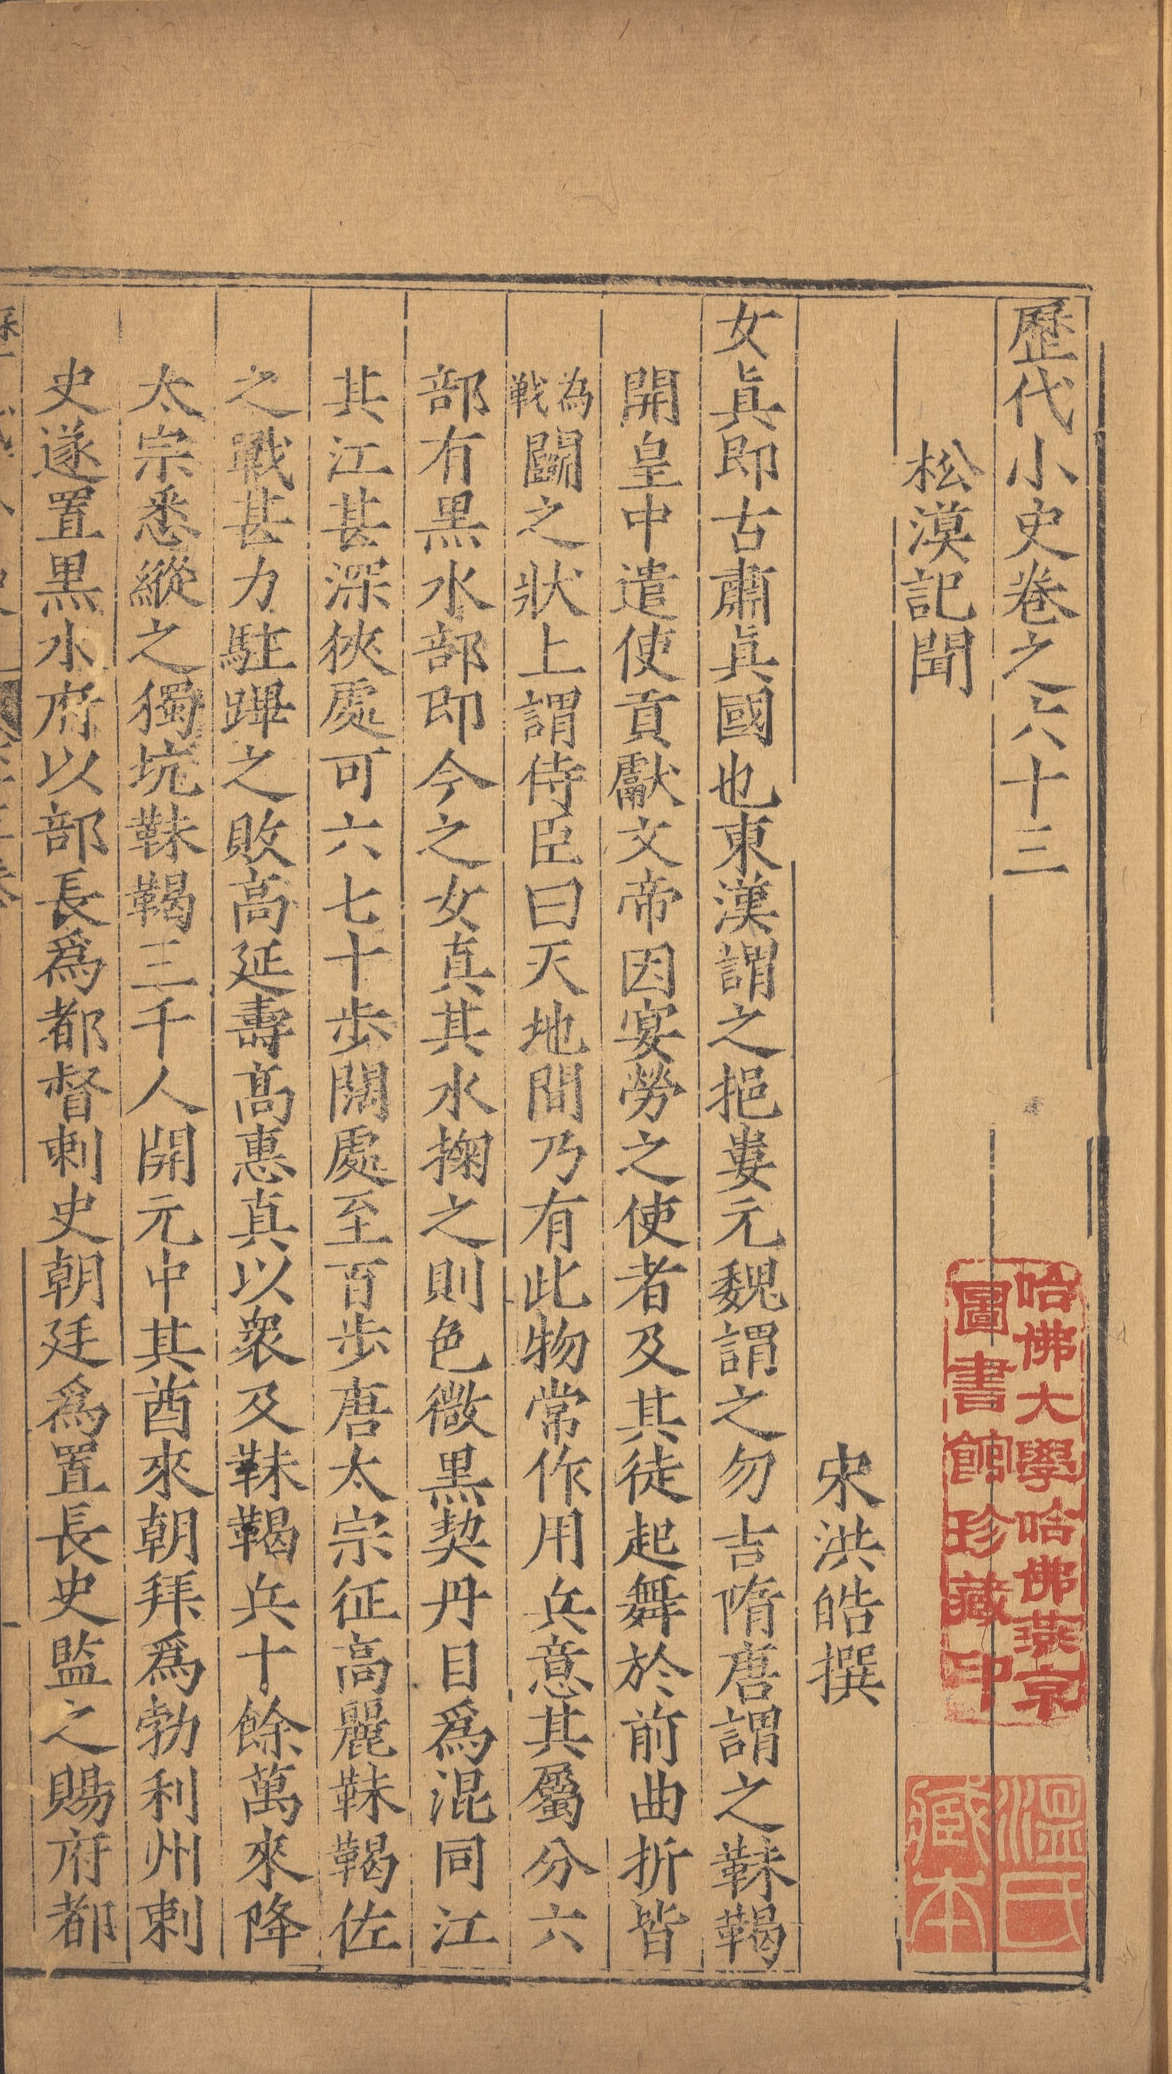 歷代小史卷之六十三
松漠記聞
宋洪皓撰
女眞即古肅眞國也東漢謂之挹婁元魏謂之勿吉隋唐謂之靺鞨
開皇中遣使貢獻文帝因宴勞之使者及其徒起舞於前曲折皆
為戰鬭之狀上謂侍臣曰天地間乃有此物常作用兵意其屬分六
部有黑水部即今之女真其水掬之則色微黑契丹目爲混同江
其江甚深狹處可六七十步闊處至百步唐太宗征高麗靺鞨佐
之戰甚力駐蹕之敗高延壽高惠真以衆及靺鞨兵十餘萬來降
太宗悉縱之獨坑靺鞨三千人開元中其酋來朝拜爲勃利州刺
史遂置黑水府以部長爲都督刺史朝廷爲置長史監之賜府都
哈佛大學哈佛燕京
圖書館珍藏印
溫氏
藏本